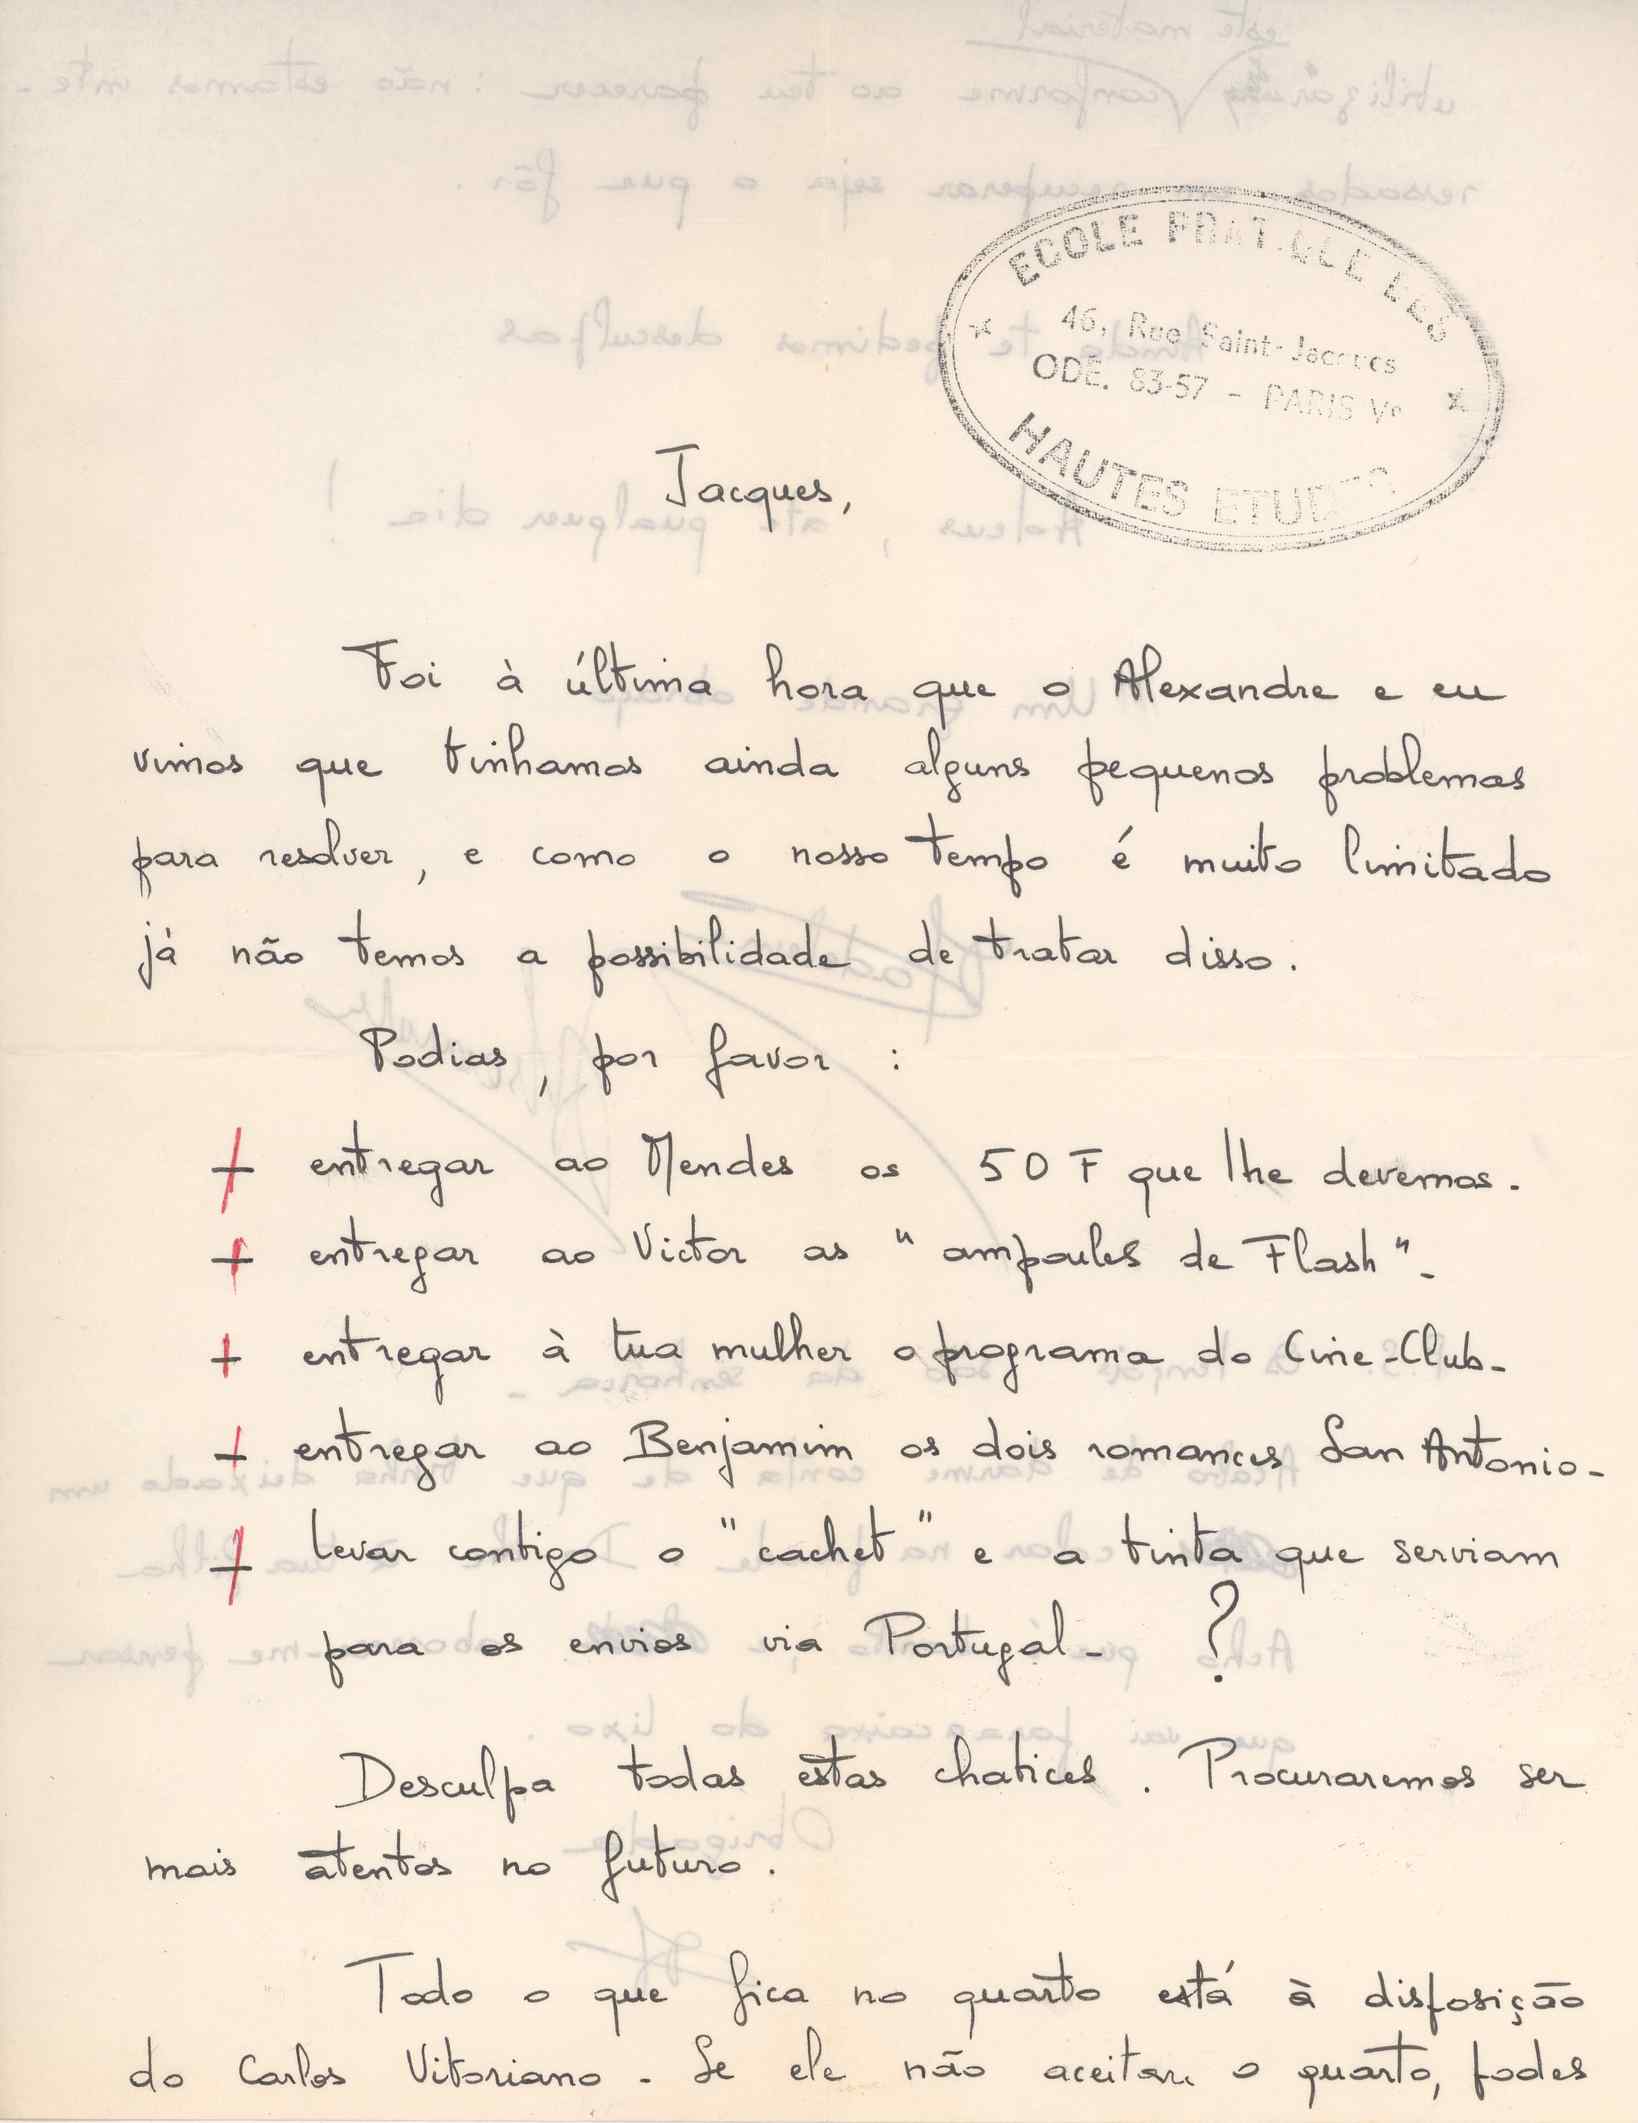 ECOLE PRATIQUE DES
46, Rue Saint-Jacques
ODE. 83-57 - PARIS Ve
HAUTES ETUDES
Jacques,
Foi à última hora que o Alexandre e eu
vimos que tinhamos ainda alguns pequenos problemas
para resolver, e como o nosso tempo é muito limitado
já não temos a possibilidade de tratar disso.
Podias, por favor :
+ entregar ao Mendes os 50 F que lhe devemos.
+ entregar ao Victor as "ampoules de Flash".
+ entregar à tua mulher o programa do Cine-Club-
+ entregar ao Benjamim os dois romances San Antonio-
+ levar contigo o "cachet" e a tinta que serviam
para os envios via Portugal- ?
Desculpa todas estas chatices. Procuraremos ser
mais atentos no futuro.
Todo o que fica no quarto está à disposição
do Carlos Vitoriano - Se ele não aceitar o quarto, podes